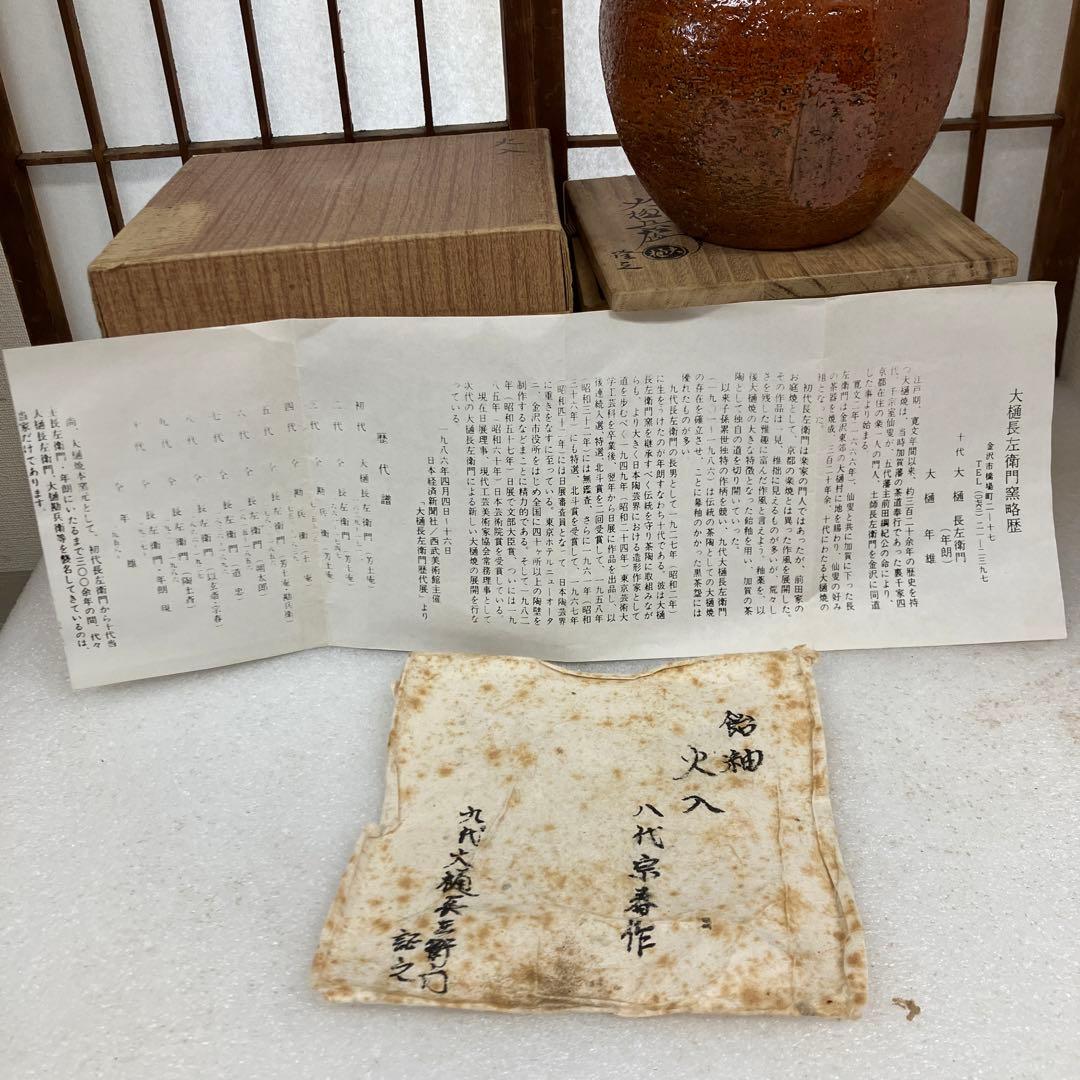 火入
大樋長左衛門窯略歴
金沢市橋場町二ー一七
十代 大樋 長左衛門
(年朗)
大樋 年雄
江戸期、寛文年間以来、約三百二十余年の歴史を持
つ大樋焼は、当時加賀藩の茶道奉行であった裏千家四
代、千宗室仙叟が、五代藩主前田綱紀公の命により、
京都在住の楽一入の門人、土師長左衛門を金沢に同道
した事より始まる。
寛文二年(一六六六年)、仙叟と共に加賀に下った長
左衛門は金沢東郊の大樋村に地を賜わり、仙叟の好み
の茶器を焼成、三百二十年余、十代にわたる大樋焼の
祖となった。
初代長左衛門は楽家の門人ではあったが、前田家の
お庭焼として、京都の楽焼とは異った作風を展開した。
その作品は一見、稚拙に見えるものが多いが、荒々し
さを残した雅趣に富んだ作風と言えよう。釉薬を、以
後大樋焼の大きな特徴となった飴釉を用い、加賀の茶
陶として独自の道を切り開いていった。
以来子孫累世独特の作柄を競い、九代大樋長左衛門
(一九〇一ー一九八六)は伝統の茶陶としての大樋焼
の存在を確立させ、ことに幕釉のかかった黒茶盌には
優れたものが多い。
九代長左衛門の長男として一九二七年(昭和二年)
に生をうけたのが年朗すなわち十代である。彼は大樋
長左衛門窯を継承すべく伝統を守り茶陶に取組みなが
らも、より大きく日本陶芸界における造形作家として
道を歩むべく一九四九年(昭和二十四年)東京芸術大
学工芸科を卒業後、翌年から日展に作品を出品し、以
後連続入選、特選、北斗賞と二回受賞して、一九五八年
(昭和三十三年)には無鑑査、さらに一九六一年(昭和
三十六年)に特選、北斗賞を受賞して、一九六七年
(昭和四十二年)には日展審査員となって、日本陶芸界
に重きをなすに至っている。東京ホテルニューオータ
ニ、金沢市役所をはじめ全国に四十ヶ所以上の陶壁を
制作するなどまことに精力的である。そして一九八二
年(昭和五十七年)日展で文部大臣賞、ついには一九
八五年(昭和六十年)日本芸術院賞を受賞している。
現在日展理事、現代工芸美術家協会常務理事として
次代の大樋長左衛門による新しい大樋焼の展開を行な
っている。
一九八六年四月四日ー十六日
日本経済新聞社/西武美術館主催
「大樋長左衛門歴代展」より
歴代譜
初代 大樋長左衛門(芳土庵)
二代 〃 長左衛門
三代 〃 勘兵衛
四代 〃 勘兵衛
五代 〃 勘兵衛
六代 〃 朔太郎
七代 〃 道忠
八代 〃 (以玄斎・宗春)
九代 〃 長左衛門(陶土斎)
十代 〃 長左衛門・年朗 現
〃 年雄
尚、大樋焼本窯元として、初代長左衛門から十代当
主長左衛門・年朗にいたるまで三〇〇余年の間、代々
大樋長左衛門、大樋勘兵衛等を襲名してきているのは、
当家だけであります。
飴釉
火入
八代宗春作
九代大樋長左衛门
証之